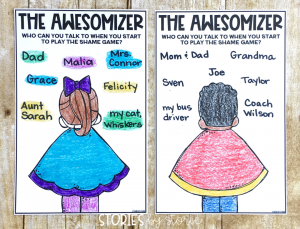 THE AWESOMIZER
WHO CAN YOU TALK TO WHEN YOU START
TO PLAY THE SHAME GAME?
Dad
Malia
Mrs.
Connor
Grace
Felicity
Aunt
Sarah
my cat,
Whiskers
THE AWESOMIZER
WHO CAN YOU TALK TO WHEN YOU START
TO PLAY THE SHAME GAME?
Mom & Dad
Grandma
Joe
Sven
Taylor
my bus
driver
Coach
Wilson
STORIES by Storie